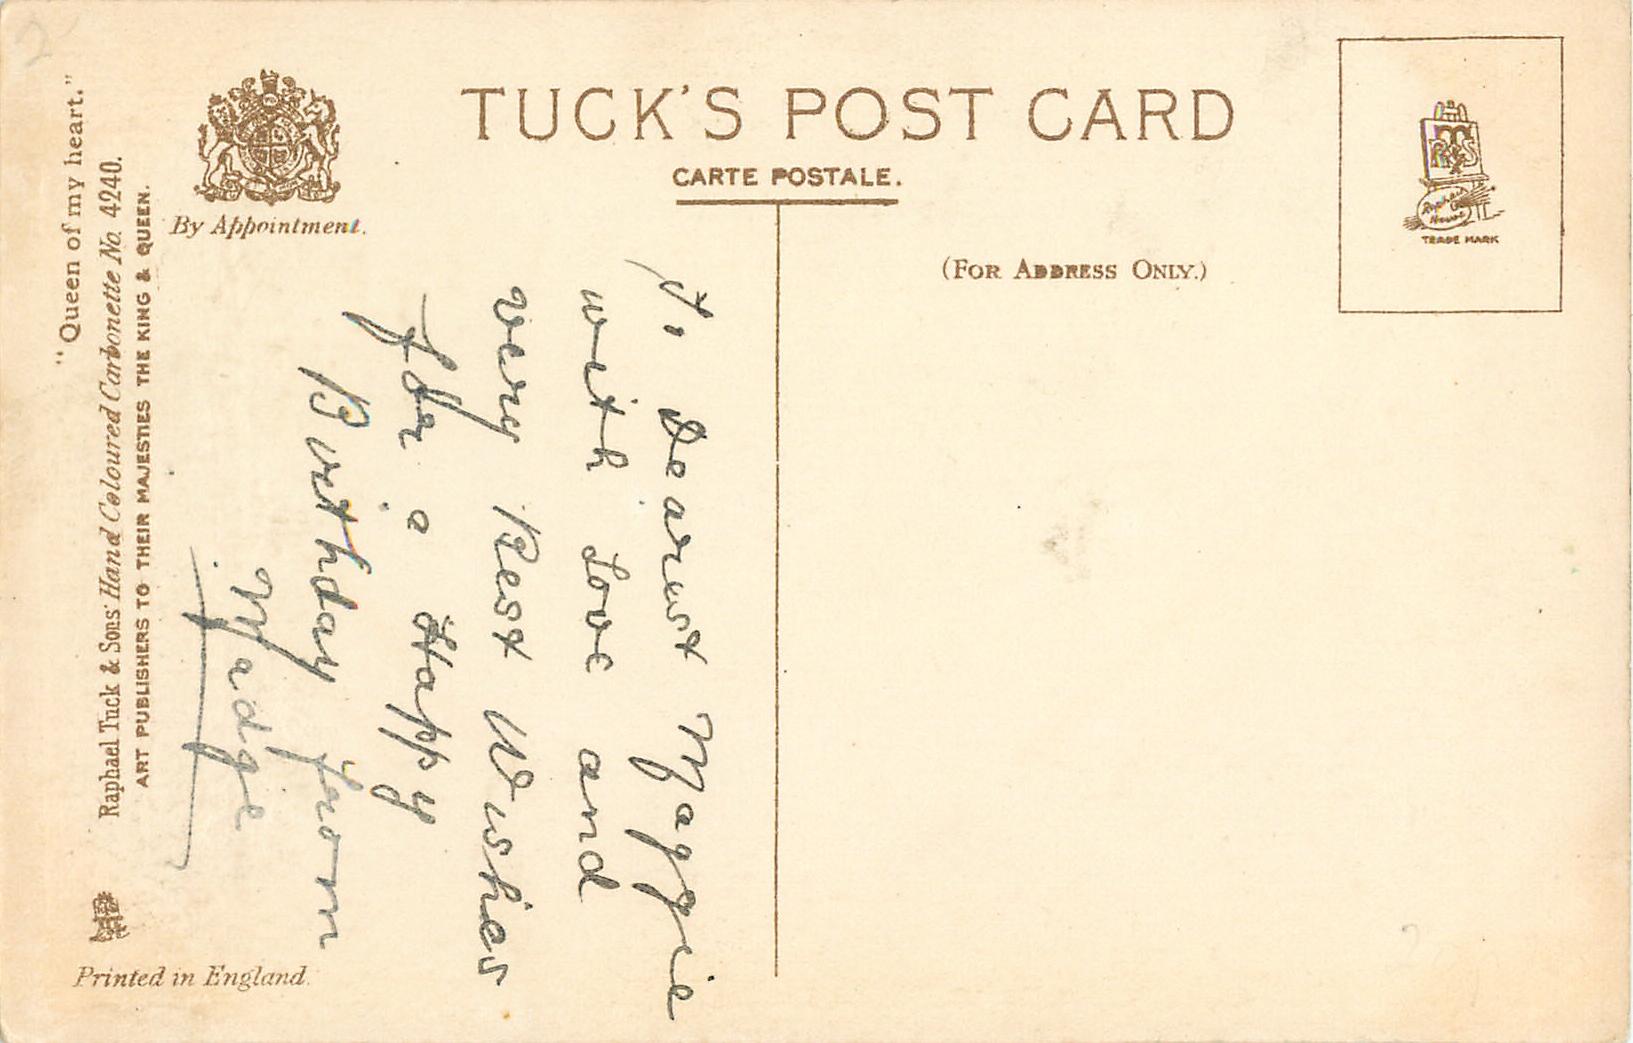 TUCK'S POST CARD
CARTE POSTALE.
(FOR ADDRESS ONLY.)
By Appointment.
"Queen of my heart."
Raphael Tuck & Sons' Hand Coloured Carbonette No. 4240.
ART PUBLISHERS TO THEIR MAJESTIES THE KING & QUEEN.
Printed in England.
R T & S
Raphael
House
TRADE MARK
To Dearest Maggie
with Love and
very Best Wishes
for a Happy
Birthday from
Madge
2